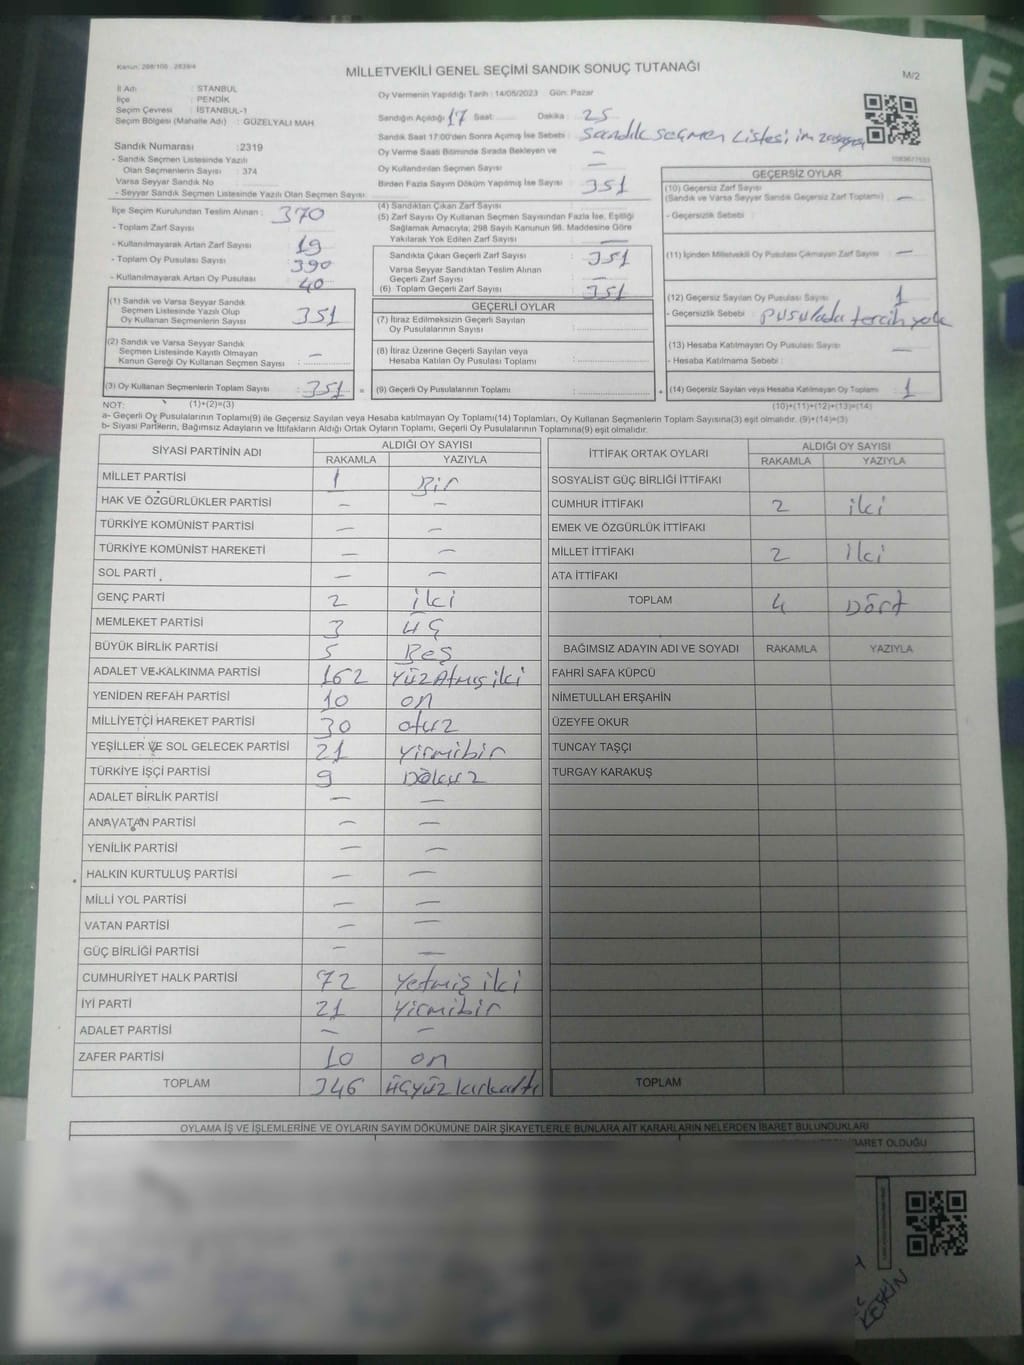 Kanun: 298/100 - 2839/4
MİLLETVEKİLİ GENEL SEÇİMİ SANDIK SONUÇ TUTANAĞI
M/2
İl Adı : STANBUL
İlçe : PENDİK
Seçim Çevresi : İSTANBUL-1
Seçim Bölgesi (Mahalle Adı) : GÜZELYALI MAH
Sandık Numarası :2319
- Sandık Seçmen Listesinde Yazılı
Olan Seçmenlerin Sayısı : 374
Varsa Seyyar Sandık No
- Seyyar Sandık Seçmen Listesinde Yazılı Olan Seçmen Sayısı
Oy Vermenin Yapıldığı Tarih : 14/05/2023 Gün: Pazar
Sandığın Açıldığı 17 Saat: Dakika : 25
Sandık Saat 17:00'den Sonra Açımış İse Sebebi : Sandık seçmen Listesi, im
Oy Verme Saati Bitiminde Sırada Bekleyen ve
Oy Kullandırılan Seçmen Sayısı : —
Birden Fazla Sayım Döküm Yapılmış İse Sayısı : 351
İlçe Seçim Kurulundan Teslim Alınan : 370
- Toplam Zarf Sayısı
- Kullanılmayarak Artan Zarf Sayısı : 19
- Toplam Oy Pusulası Sayısı : 390
- Kullanılmayarak Artan Oy Pusulası : 40
(1) Sandık ve Varsa Seyyar Sandık
Seçmen Listesinde Yazılı Olup
Oy Kullanan Seçmenlerin Sayısı : 351
(2) Sandık ve Varsa Seyyar Sandık
Seçmen Listesinde Kayıtlı Olmayan
Kanun Gereği Oy Kullanan Seçmen Sayısı : —
(3) Oy Kullanan Seçmenlerin Toplam Sayısı : 351
(4) Sandıktan Çıkan Zarf Sayısı
(5) Zarf Sayısı Oy Kullanan Seçmen Sayısından Fazla İse, Eşitliği
Sağlamak Amacıyla; 298 Sayılı Kanunun 98. Maddesine Göre
Yakılarak Yok Edilen Zarf Sayısı : —
Sandıkta Çıkan Geçerli Zarf Sayısı : 351
Varsa Seyyar Sandıktan Teslim Alınan
Geçerli Zarf Sayısı
(6) Toplam Geçerli Zarf Sayısı : 351
GEÇERLİ OYLAR
(7) İtiraz Edilmeksizin Geçerli Sayılan
Oy Pusulalarının Sayısı :
(8) İtiraz Üzerine Geçerli Sayılan veya
Hesaba Katılan Oy Pusulası Toplamı :
(9) Geçerli Oy Pusulalarının Toplamı :
GEÇERSİZ OYLAR
(10) Geçersiz Zarf Sayısı
(Sandık ve Varsa Seyyar Sandık Geçersiz Zarf Toplamı) : —
- Geçersizlik Sebebi :
(11) İçinden Milletvekili Oy Pusulası Çıkmayan Zarf Sayısı : —
(12) Geçersiz Sayılan Oy Pusulası Sayısı : 1
- Geçersizlik Sebebi : pusulada tercih yok
(13) Hesaba Katılmayan Oy Pusulası Sayısı : —
- Hesaba Katılmama Sebebi :
(14) Geçersiz Sayılan veya Hesaba Katılmayan Oy Toplamı : 1
NOT: (1)+(2)=(3) (10)+(11)+(12)+(13)=(14)
a- Geçerli Oy Pusulalarının Toplamı(9) ile Geçersiz Sayılan veya Hesaba katılmayan Oy Toplamı(14) Toplamları, Oy Kullanan Seçmenlerin Toplam Sayısına(3) eşit olmalıdır. (9)+(14)=(3)
b- Siyasi Partilerin, Bağımsız Adayların ve İttifakların Aldığı Ortak Oyların Toplamı, Geçerli Oy Pusulalarının Toplamına(9) eşit olmalıdır.
SİYASİ PARTİNİN ADI ALDIĞI OY SAYISI
RAKAMLA YAZIYLA
MİLLET PARTİSİ 1 Bir
HAK VE ÖZGÜRLÜKLER PARTİSİ — —
TÜRKİYE KOMÜNİST PARTİSİ — —
TÜRKİYE KOMÜNİST HAREKETİ — —
SOL PARTİ — —
GENÇ PARTİ 2 iki
MEMLEKET PARTİSİ 3 üç
BÜYÜK BİRLİK PARTİSİ 5 Beş
ADALET VE KALKINMA PARTİSİ 162 Yüz Atmış iki
YENİDEN REFAH PARTİSİ 10 on
MİLLİYETÇİ HAREKET PARTİSİ 30 otuz
YEŞİLLER VE SOL GELECEK PARTİSİ 21 Yirmibir
TÜRKİYE İŞÇİ PARTİSİ 9 Dokuz
ADALET BİRLİK PARTİSİ — —
ANAVATAN PARTİSİ — —
YENİLİK PARTİSİ — —
HALKIN KURTULUŞ PARTİSİ — —
MİLLİ YOL PARTİSİ — —
VATAN PARTİSİ — —
GÜÇ BİRLİĞİ PARTİSİ — —
CUMHURİYET HALK PARTİSİ 72 Yetmiş iki
İYİ PARTİ 21 Yirmibir
ADALET PARTİSİ — —
ZAFER PARTİSİ 10 on
TOPLAM 346 üçyüz kırkaltı
İTTİFAK ORTAK OYLARI ALDIĞI OY SAYISI
RAKAMLA YAZIYLA
SOSYALİST GÜÇ BİRLİĞİ İTTİFAKI
CUMHUR İTTİFAKI 2 iki
EMEK VE ÖZGÜRLÜK İTTİFAKI
MİLLET İTTİFAKI 2 iki
ATA İTTİFAKI
TOPLAM 4 Dört
BAĞIMSIZ ADAYIN ADI VE SOYADI RAKAMLA YAZIYLA
FAHRİ SAFA KÜPCÜ
NİMETULLAH ERŞAHİN
ÜZEYFE OKUR
TUNCAY TAŞÇI
TURGAY KARAKUŞ
TOPLAM
OYLAMA İŞ VE İŞLEMLERİNE VE OYLARIN SAYIM DÖKÜMÜNE DAİR ŞİKAYETLERLE BUNLARA AİT KARARLARIN NELERDEN İBARET BULUNDUKLARI
İBARET OLDUĞU
KESKİN